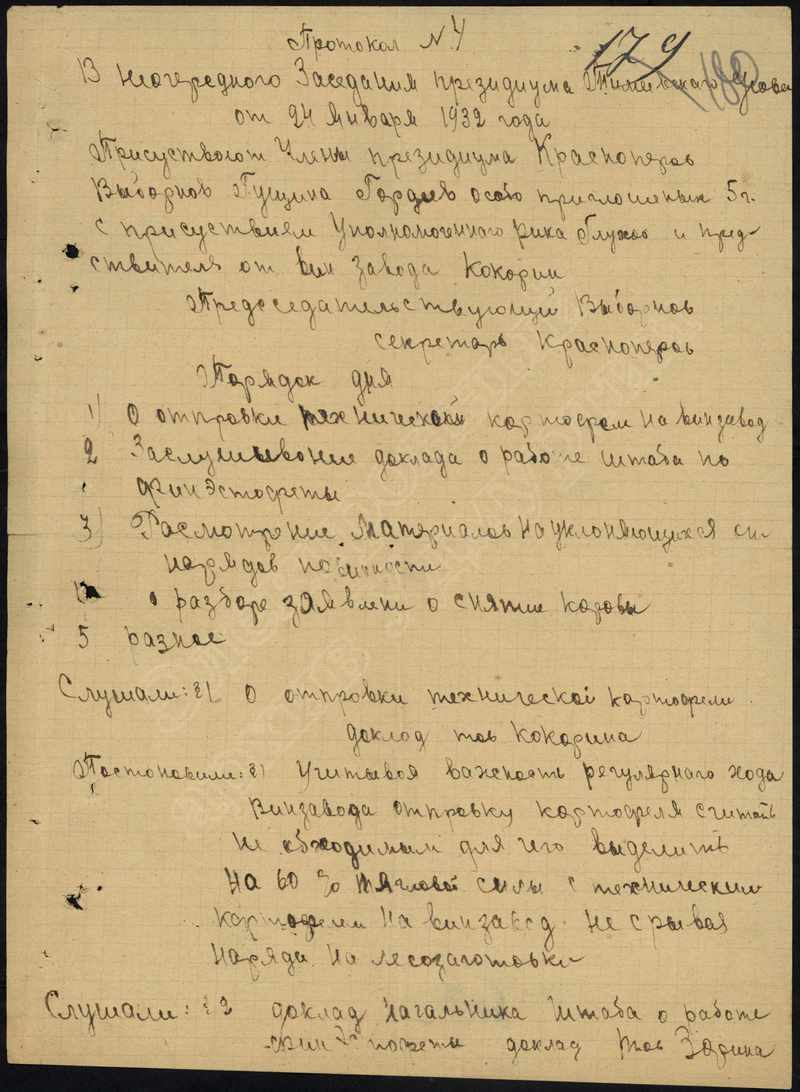 Протокол №4
179
180
В неочередного Заседания президиума совета
от 24 января 1932 года
Присуствоют Члены президиума Красноперов
Выборнов Гущина Гордиев особо приглошеных 5 г.
с присуствием Уполномоченного рика Глухов и пред-
ствителя от вин завода Кокорин
Председательствующий Выборнов
секретарь Красноперов
Порядок дня
1) О отправки технической картофели на винзавод
2 Заслушывоние доклада о работе штаба по
финэстафеты
3) Расмотрение материалов на уклоняющихся
нарядов повиности
о разборе заявлени о снятие коровы
5 разное
Слушали: §1 О отправки технической картофели
доклод тов Кокорина
Постоновили: §1 Учитывоя важность регулярного хода
Винзавода отправку картофеля считать
не обходимым для чего выделить
на 60 % тягловой силы с технический
картофели на винзавод. не срывая
наряда на лесозаготовки
Слушали: §2 доклад начальника штаба о работе
фин эстафеты доклад тов Зорина